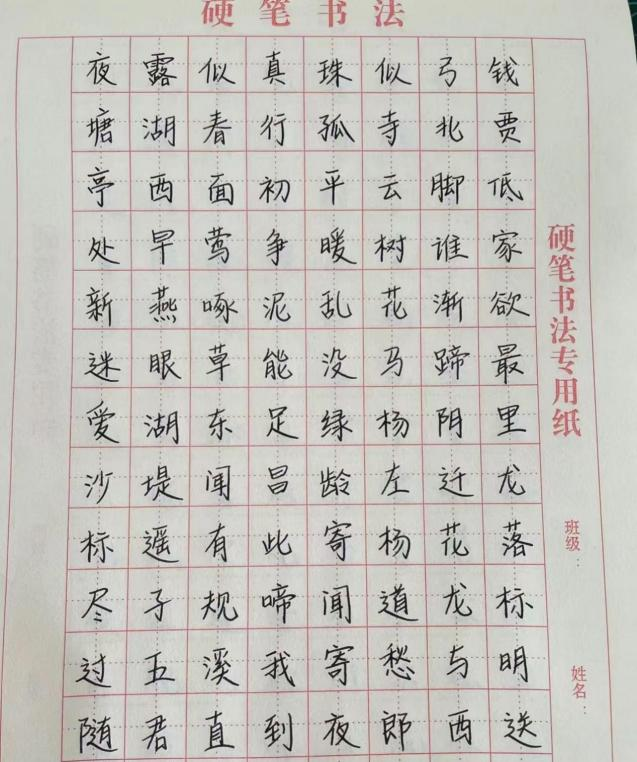 硬笔书法
夜露似真珠似弓钱
塘湖春行孤寺北贾
亭西面初平云脚低
处早莺争暖树谁家
新燕啄泥乱花渐欲
迷眼草能没马蹄最
爱湖东足绿杨阴里
沙堤闻昌龄左迁龙
标遥有此寄杨花落
尽子规啼闻道龙标
过五溪我寄愁与明
随君直到夜郎西送
硬笔书法专用纸
班级：
姓名：